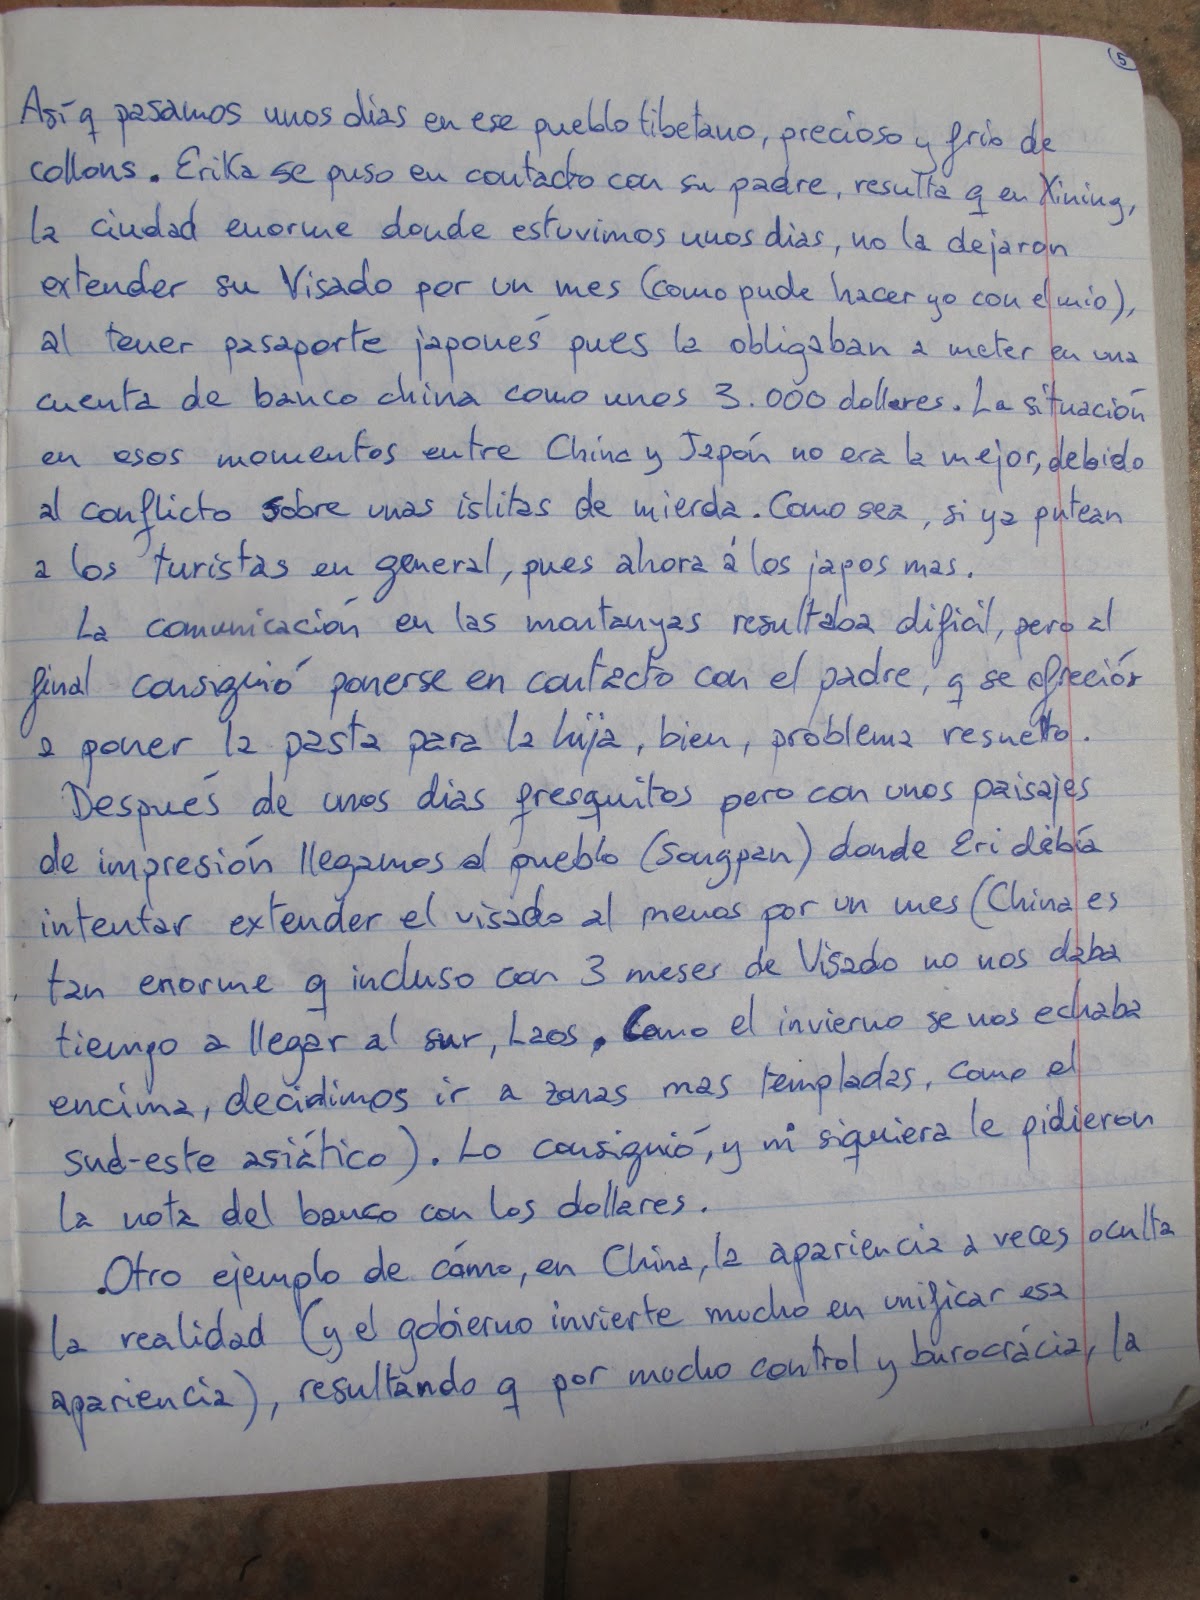 5
Así q pasamos unos dias en ese pueblo tibetano, precioso y frío de
collons. Erika se puso en contacto con su padre, resulta q en Xining,
la ciudad enorme donde estuvimos unos dias, no la dejaron
extender su Visado por un mes (como pude hacer yo con el mío),
al tener pasaporte japonés pues la obligaban a meter en una
cuenta de banco china como unos 3.000 dollares. La situación
en esos momentos entre China y Japón no era la mejor, debido
al conflicto sobre unas islitas de mierda. Como sea, si ya putean
a los turistas en general, pues ahora á los japos mas.
La comunicación en las montanyas resultaba dificil, pero al
final consiguió ponerse en contacto con el padre, q se ofreció
a poner la pasta para la hija, bien, problema resuelto.
Después de unos dias fresquitos pero con unos paisajes
de impresión llegamos al pueblo (Songpan) donde Eri debía
intentar extender el visado al menos por un mes (China es
tan enorme q incluso con 3 meses de Visado no nos daba
tiempo a llegar al sur, Laos. Como el invierno se nos echaba
encima, decidimos ir a zonas mas templadas, como el
sud-este asiático). Lo consiguió, y ni siquiera le pidieron
la nota del banco con los dollares.
Otro ejemplo de cómo, en China, la apariencia a veces oculta
la realidad (y el gobierno invierte mucho en unificar esa
apariencia), resultando q por mucho control y burocrácia, la